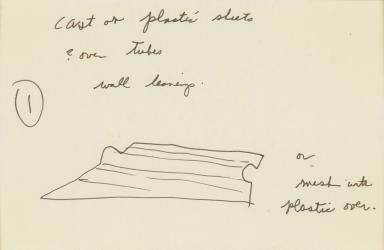 cast on plastic sheets
? over tubes
wall leanings.
1
or
mesh with
plastic over.